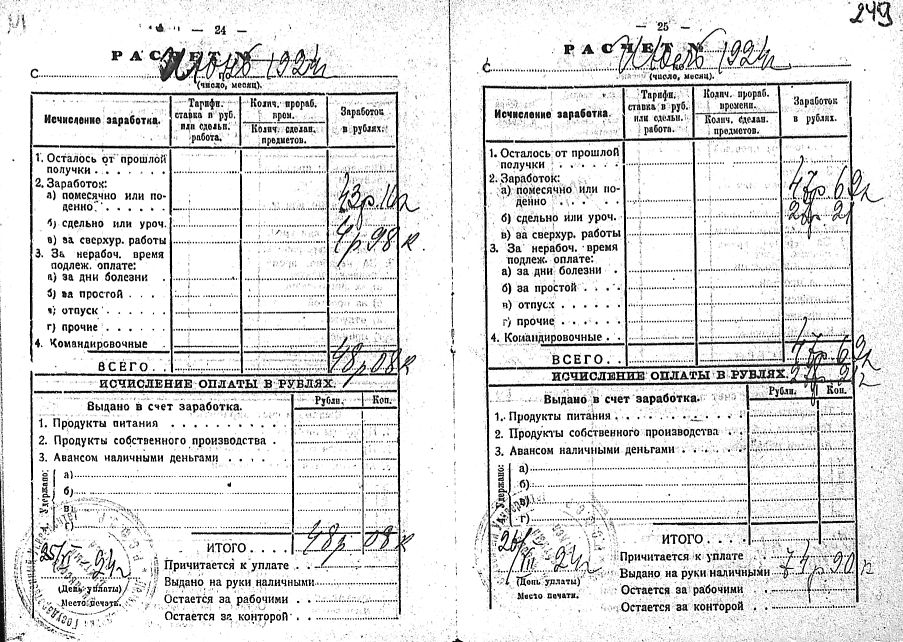 — 24 —
РАСЧЕТ №
Июнь 1924 г
С
(число, месяц).
Исчисление заработка.
Тарифн. ставка в руб. или сдельн. работа.
Колич. прораб. врем.
Колич. сделан. предметов.
Заработок в рублях.
1. Осталось от прошлой
получки
2. Заработок:
а) помесячно или по-
денно
43р. 10к
б) сдельно или уроч.
в) за сверхур. работы
4р 98к.
3. За нерабоч. время
подлеж. оплате:
а) за дни болезни
б) за простой
в) отпуск
г) прочие
4. Командировочные
ВСЕГО
48р 08к
ИСЧИСЛЕНИЕ ОПЛАТЫ В РУБЛЯХ.
Выдано в счет заработка.
Рубли.
Коп.
1. Продукты питания
2. Продукты собственного производства
3. Авансом наличными деньгами
4. Удержано:
а)
б)
в)
г)
ИТОГО
48р 08к
Причитается к уплате
Выдано на руки наличными
Остается за рабочими
Остается за конторой
24г
(День уплаты)
Место печати.
— 25 —
249
РАСЧЕТ №
Июль 1924г
С
по
(число, месяц).
Исчисление заработка.
Тарифн. ставка в руб. или сдельн. работа.
Колич. прораб. времени.
Колич. сделан. предметов.
Заработок в рублях.
1. Осталось от прошлой
получки
2. Заработок:
а) помесячно или по-
денно
47р. 69к
27р. 21
б) сдельно или уроч.
в) за сверхур. работы
3. За нерабоч. время
подлеж. оплате:
а) за дни болезни
б) за простой
в) отпуск
г) прочие
4. Командировочные
ВСЕГО
47р. 69к
27р 21к
ИСЧИСЛЕНИЕ ОПЛАТЫ В РУБЛЯХ.
Выдано в счет заработка.
Рубли.
Коп.
1. Продукты питания
2. Продукты собственного производства
3. Авансом наличными деньгами
4. Удержано:
а)
б)
в)
г)
ИТОГО
Причитается к уплате
Выдано на руки наличными
74р 90к
Остается за рабочими
Остается за конторой
24г
(День уплаты)
Место печати.